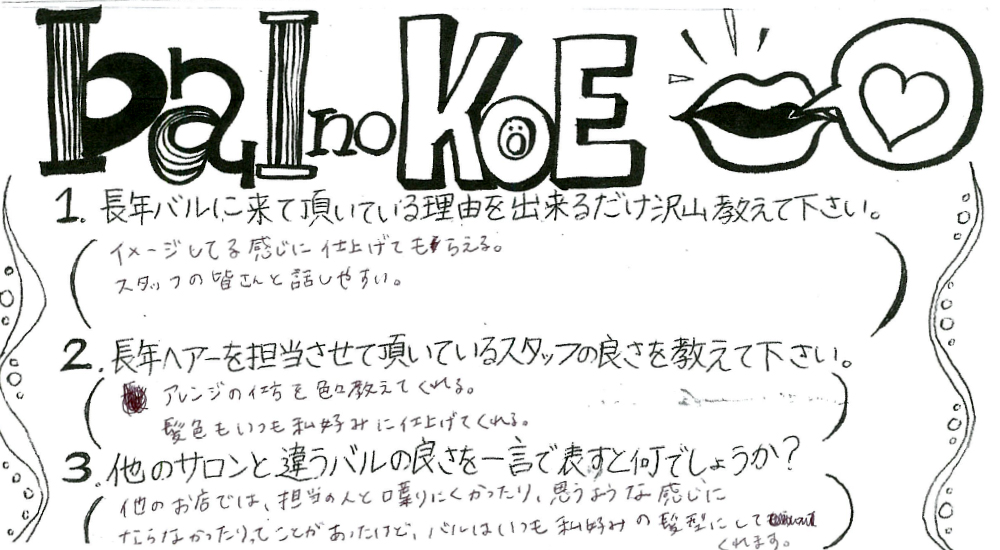 bal no KOE
1. 長年バルに来て頂いている理由を出来るだけ沢山教えて下さい。
イメージしてる感じに仕上げてもらえる。
スタッフの皆さんと話しやすい。
2. 長年ヘアーを担当させて頂いているスタッフの良さを教えて下さい。
アレンジの仕方を色々教えてくれる。
髪色もいつも私好みに仕上げてくれる。
3. 他のサロンと違うバルの良さを一言で表すと何でしょうか?
他のお店では、担当の人と喋りにくかったり、思うような感じに
ならなかったりってことがあったけど、バルはいつも私好みの髪型にして
くれます。